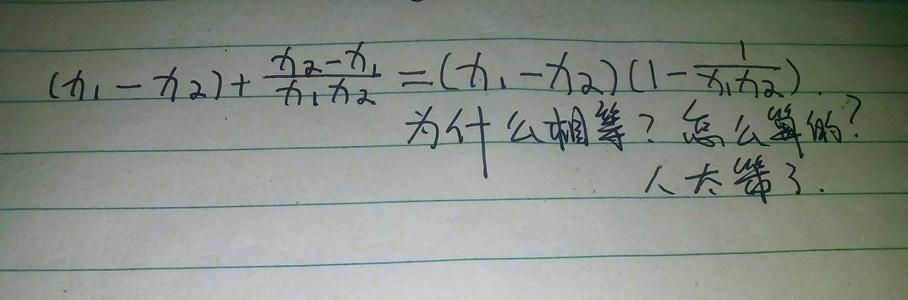 (x₁-x₂)+\frac{x₂-x₁}{x₁x₂}=(x₁-x₂)(1-\frac{1}{x₁x₂}).
为什么相等?怎么算的?
人太笨了.